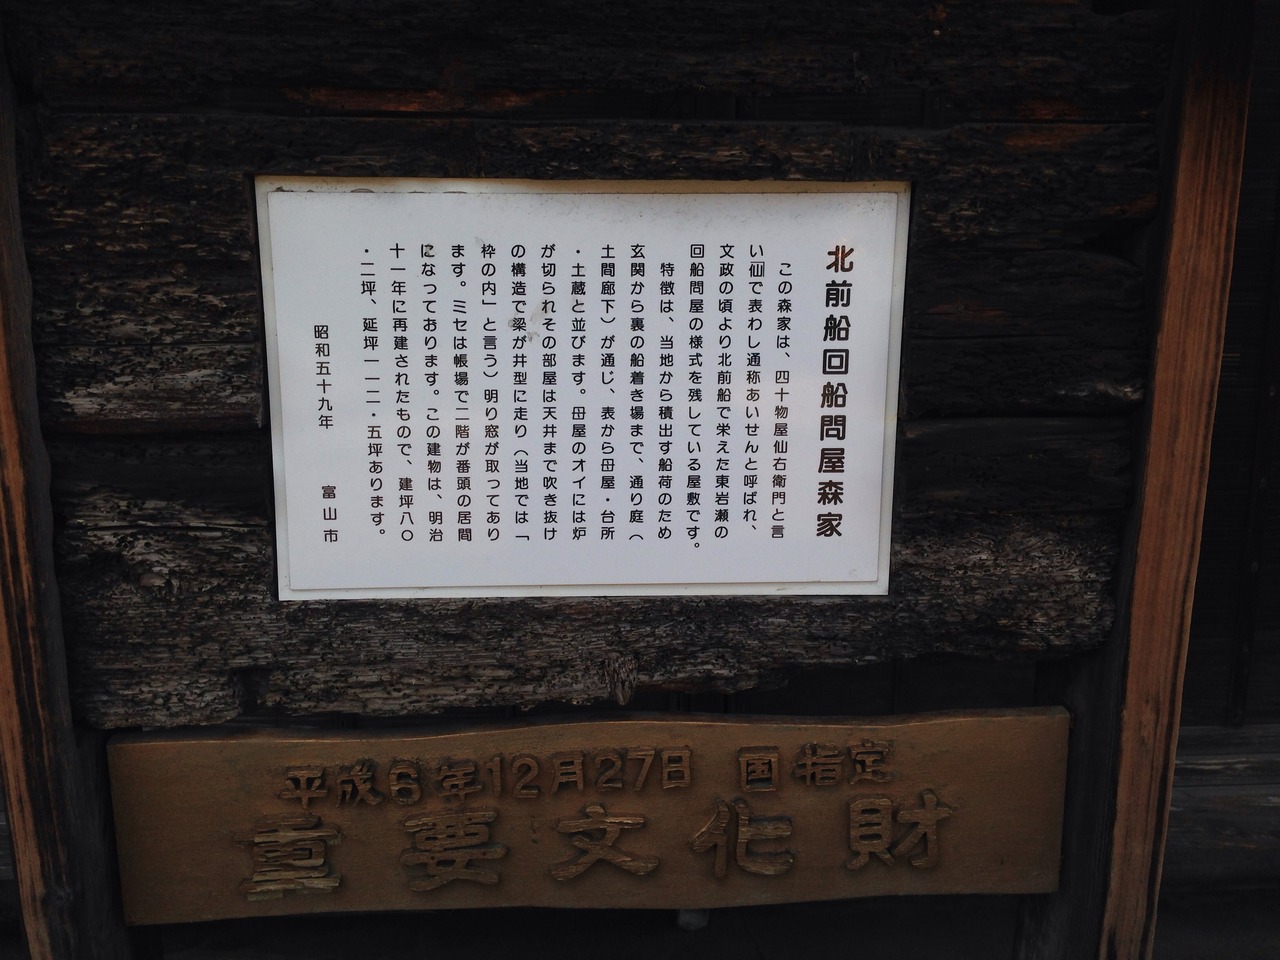 北前船回船問屋森家
この森家は、四十物屋仙右衛門と言
い仙で表わし通称あいせんと呼ばれ、
文政の頃より北前船で栄えた東岩瀬の
回船問屋の様式を残している屋敷です。
特徴は、当地から積出す船荷のため
玄関から裏の船着き場まで、通り庭（
土間廊下）が通じ、表から母屋・台所
・土蔵と並びます。母屋のオイには炉
が切られその部屋は天井まで吹き抜け
の構造で梁が井型に走り（当地では「
枠の内」と言う）明り窓が取ってあり
ます。ミセは帳場で二階が番頭の居間
になっております。この建物は、明治
十一年に再建されたもので、建坪八〇
・二坪、延坪一一二・五坪あります。
昭和五十九年　富山市
平成6年12月27日 国指定
重要文化財